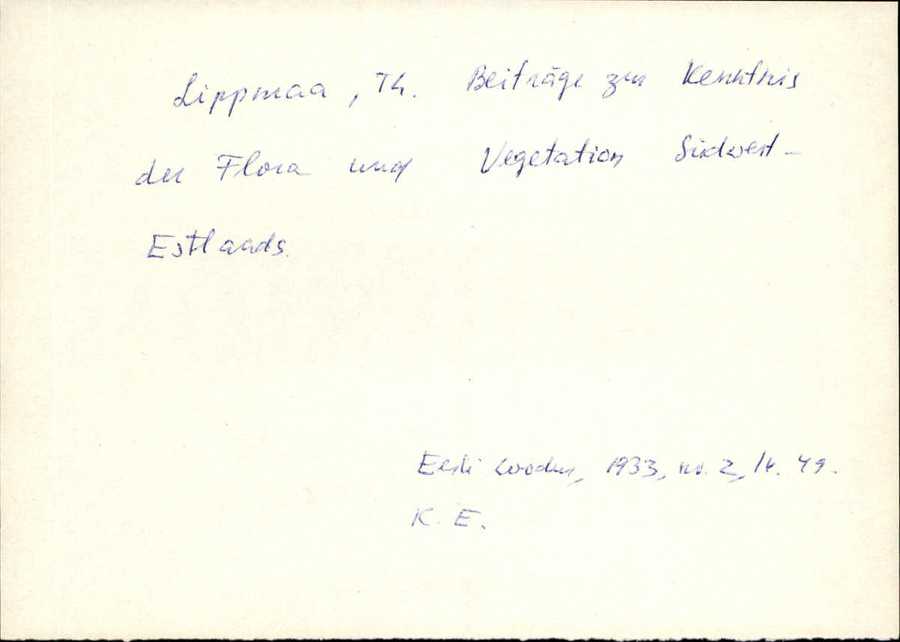 Lippmaa, Th. Beiträge zur Kenntnis
der Flora und Vegetation Südwest-
Estlands.
Eesti Loodus, 1933, nr. 2, lk. 49.
K. E.